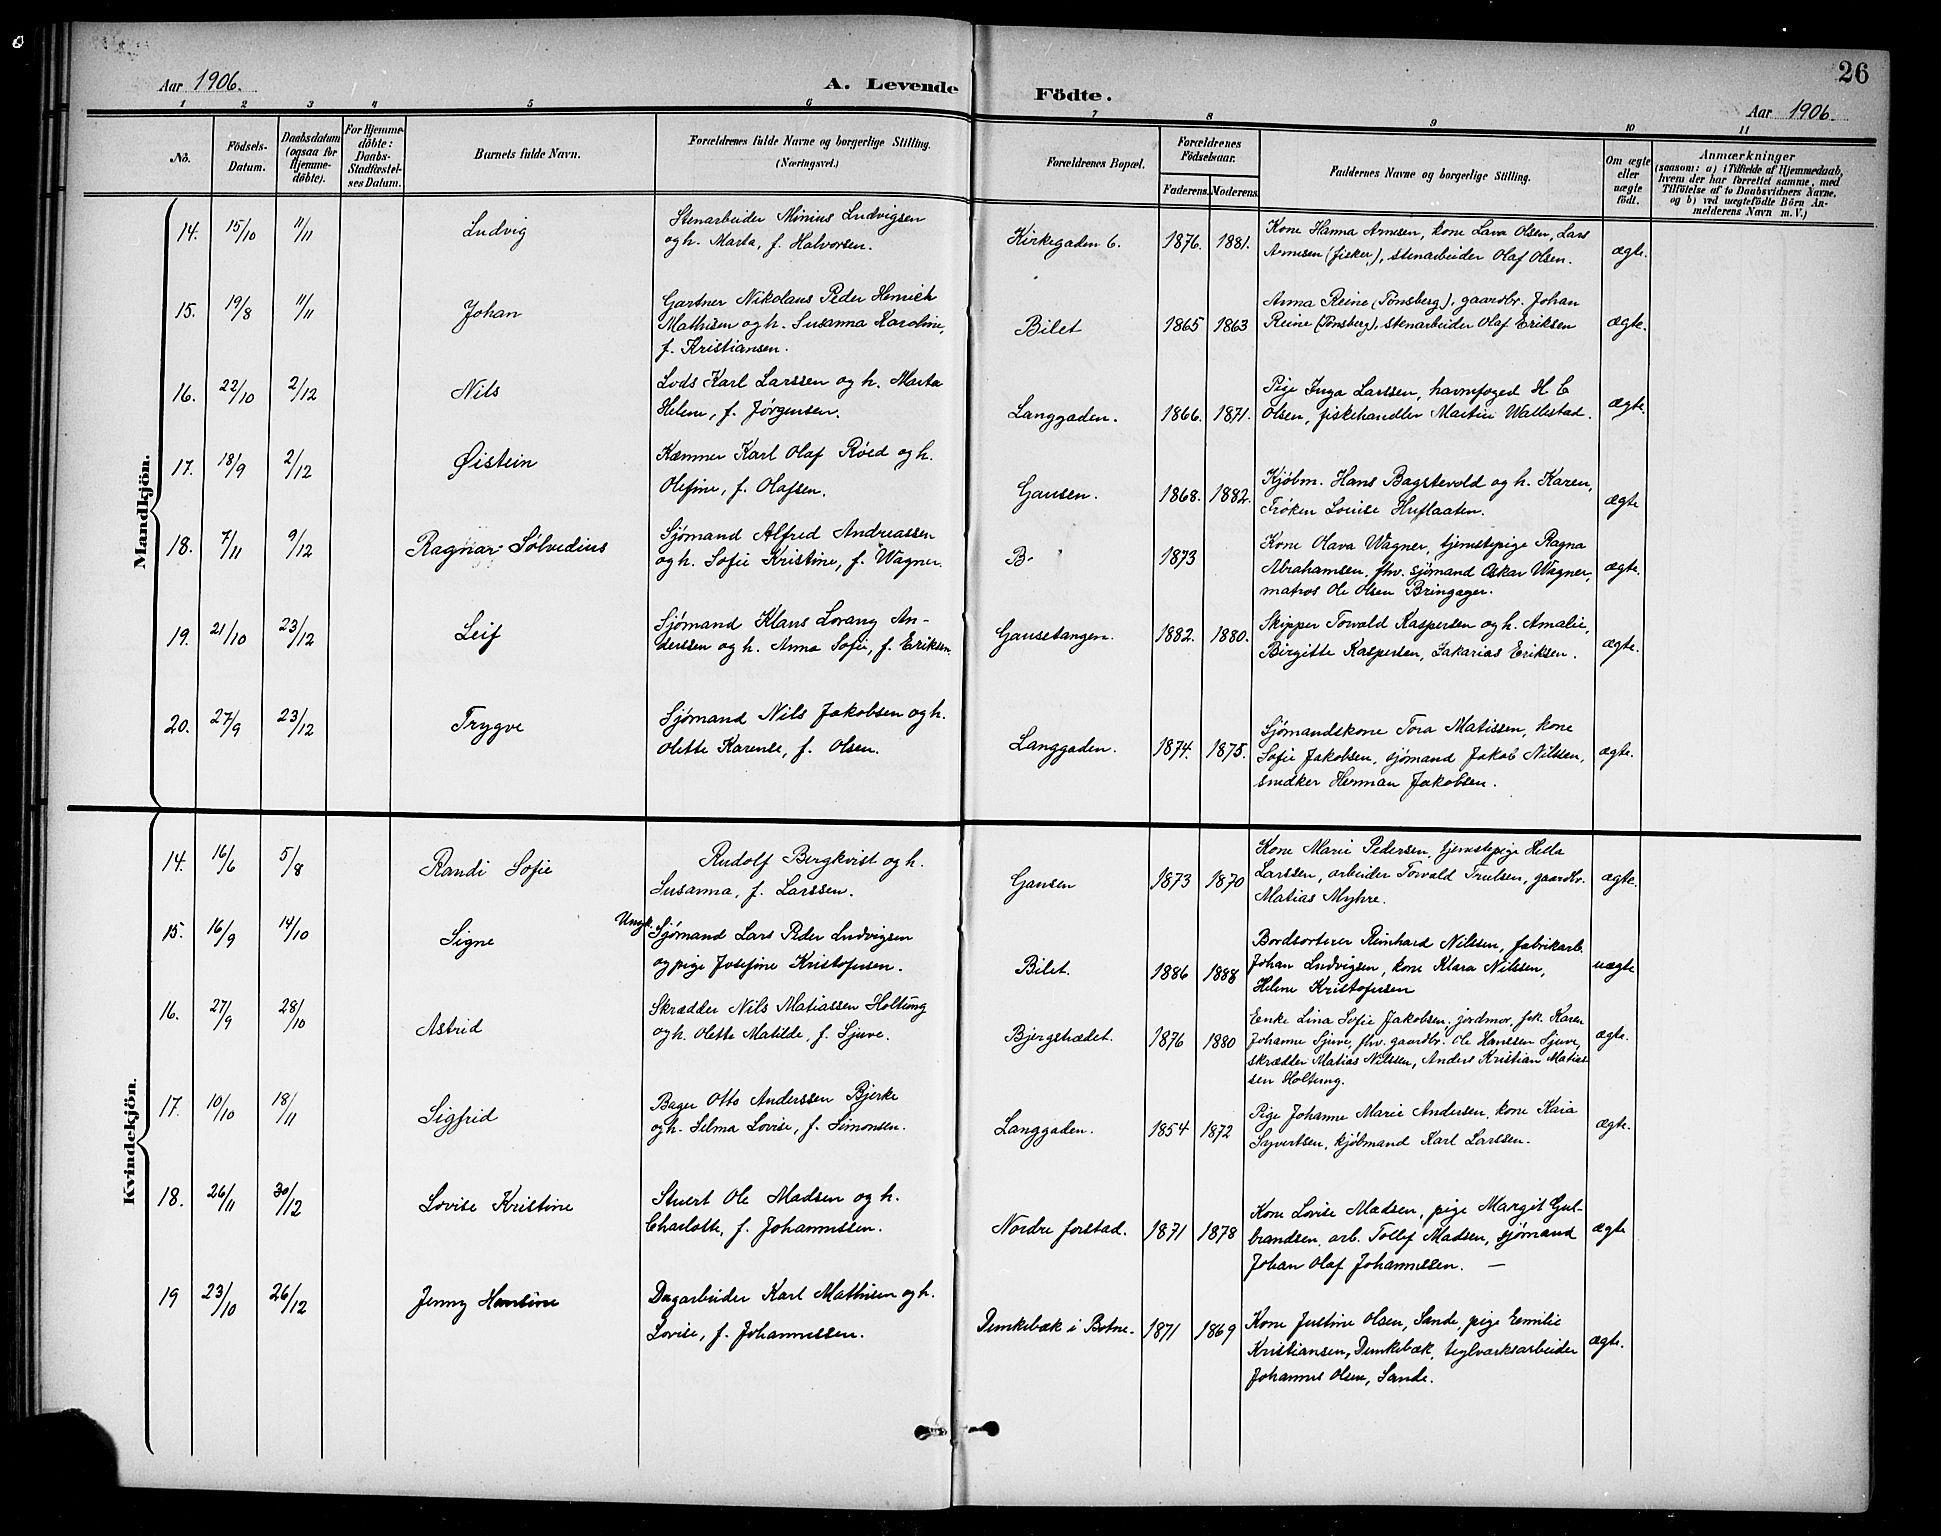 26
Aar 1906.
A. Levende Födte.
Aar 1906.
1 2 3 4 5 6 7 8 9 10 11
No.
Födsels-
Datum.
Daabsdatum
(ogsaa for
Hjemme-
døbte).
For Hjemme-
døbte:
Daabs-
Stadfæstel-
ses Datum.
Barnets fulde Navn.
Forældrenes fulde Navne og borgerlige Stilling.
(Næringsvei.)
Forældrenes Bopæl.
Forældrenes
Födselsaar.
Faderens. Moderens.
Faddernes Navne og borgerlige Stilling.
Om ægte
eller
uægte
født.
Anmærkninger
(saasom: a) i Tilfælde af Hjemmedaab,
hvem der har forrettet samme, med
Tilföielse af to Daabsvidners Navne,
og b) ved uægtefödte Börn An-
melderens Navn m. V.)
Mandkjön.
14. 15/10 11/11 Ludvig
Stenarbeider Minius Ludvigsen
og h. Marta, f. Halvorsen.
Kirkegaden 6. 1876. 1881.
Kone Hanna Arnesen, kone Lava Olsen, Lars
Arnesen (fisker), stenarbeider Olaf Olsen.
ægte.
15. 19/8 11/11 Johan
Gartner Nikolaus Peder Henrich
Mathisen og h. Susanna Karoline,
f. Kristiansen.
Bilet 1865 1863
Anna Reine (Tønsberg), gaardbr. Johan
Reine (Tønsberg), stenarbeider Olaf Eriksen
ægte.
16. 22/10 2/12 Nils
Lods Karl Larssen og h. Marta
Helene, f. Jørgensen.
Langgaden. 1866. 1871.
Pige Inga Larssen, havnefoged H. C
Olsen, fiskehandler Martin Wallestad.
ægte.
17. 18/9 2/12 Øistein
Kæmner Karl Olaf Røed og h.
Olefine, f. Olafsen.
Gausen. 1868. 1882.
Kjøbm. Hans Bagstevold og h. Karen,
Frøken Louise Huflaaten.
ægte
18. 7/11 9/12 Ragnar Sølvedius
Sjømand Alfred Andreassen
og h. Sofie Kristine, f. Wagner.
B- 1873
Kone Olava Wagner, tjenestepige Ragna
Abrahamsen, fhv. sjømand Oskar Wagner,
matros Ole Olsen Bringager.
ægte.
19. 21/10 23/12 Leif
Sjømand Klaus Lorang An-
derssen og h. Anna Sofie, f. Eriksen.
Gausetangen. 1882. 1880.
Skipper Torvald Kaspersen og h. Amalie,
Birgitte Kaspersen, Sakarias Eriksen.
ægte.
20. 27/9 23/12 Trygve
Sjømand Nils Jakobsen og h.
Olette Karense, f. Olsen.
Langgaden. 1874. 1875.
Sjømandskone Tora Matissen, kone
Sofie Jakobsen, sjømand Jakob Nilssen,
snedker Herman Jakobsen.
ægte.
Kvindekjön.
14. 16/6 5/8 Randi Sofie
Rudolf Bergkvist og h.
Susanna, f. Larssen.
Gausen 1873 1870
Kone Marie Pedersen, tjenestepige Hella
Larssen, arbeider Torvald Trulsen, gaardbr.
Matias Myhre.
ægte.
15. 16/9 14/10 Signe
Ungk. Sjømand Lars Peder Ludvigsen
og pige Josefine Kristofersen.
Bilet. 1886 1888
Bordsorterer Reinhard Nilssen, fabrikarb.
Johan Ludvigsen, kone Klara Nilssen,
Helene Kristofersen
uægte
16. 27/9 28/10 Astrid
Skrædder Nils Matiassen Holtung
og h. Olette Matilde, f. Sjuve.
Bjergstrædet. 1876 1880
Enke Lina Sofie Jakobsen, jordmor, frk. Karen
Johanne Sjuve, fhv. gaardbr. Ole Hanssen Sjuve,
skrædder Matias Nilssen, Anders Kristian Matias-
sen Holtung.
ægte.
17. 10/10 18/11 Sigfrid
Bager Otto Anderssen Bjerke
og h. Selma Lovise, f. Simonsen.
Langgaden. 1854 1872
Pige Johanne Marie Andersen, kone Kaia
Syvertsen, kjøbmand Karl Larssen.
ægte.
18. 26/11 30/12 Lovise Kristine
Stuert Ole Madsen og h.
Charlotte, f. Johannessen.
Nordre forstad. 1871 1878
Kone Lovise Madsen, pige Margit Gul-
brandsen, arb. Tollef Madsen, sjømand
Johan Olaf Johannessen. —
ægte
19 23/10 26/12 Jenny Hansine
Dagarbeider Karl Mathisen og h.
Lovise, f. Johannessen.
Dunkebæk i Botne. 1871 1869
Kone Justine Olsen, Sande, pige Emilie
Kristiansen, Dunkebæk, teglværksarbeider
Johannes Olsen, Sande.
ægte.